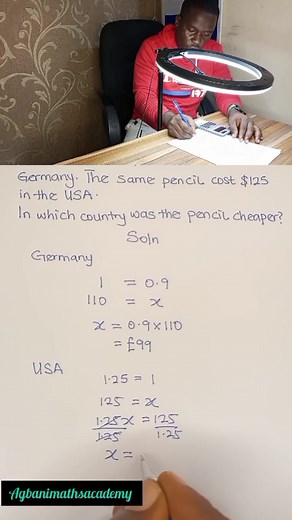 Germany. The same pencil cost $125
in the USA.
In which country was the pencil cheaper?
Soln
Germany
1 = 0.9
110 = x
x = 0.9 × 110
= £99
USA
1.25 = 1
125 = x
1.25x/1.25 = 125/1.25
x =
Agbanimathsacademy